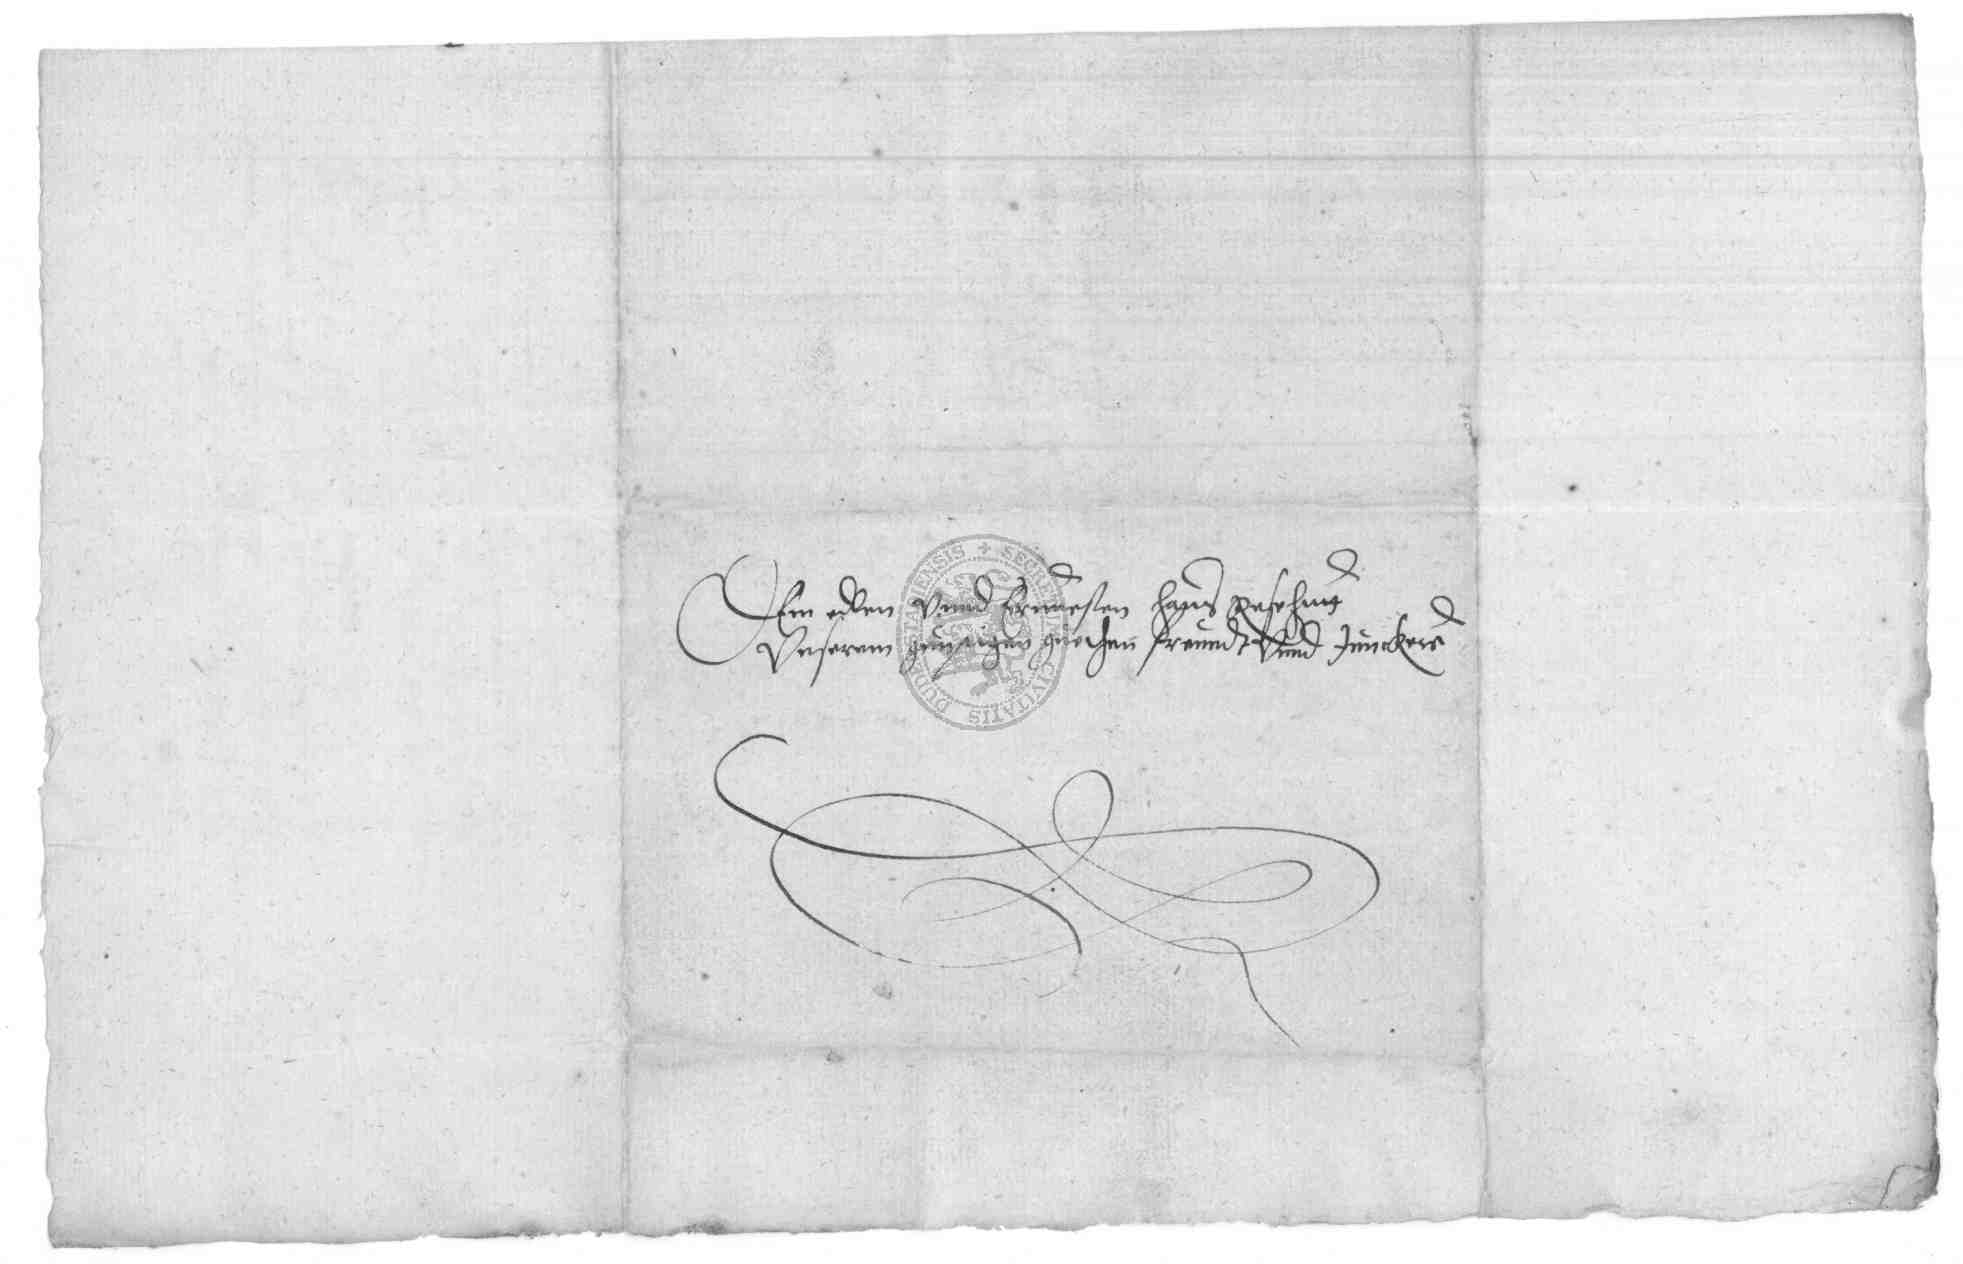 Dem edlen Vnnd Ernuesten Hans
Vnserem gunstigen guethen freundt Vnnd Junckern
SECRETUM CIVITATIS DUDERSTADIENSIS